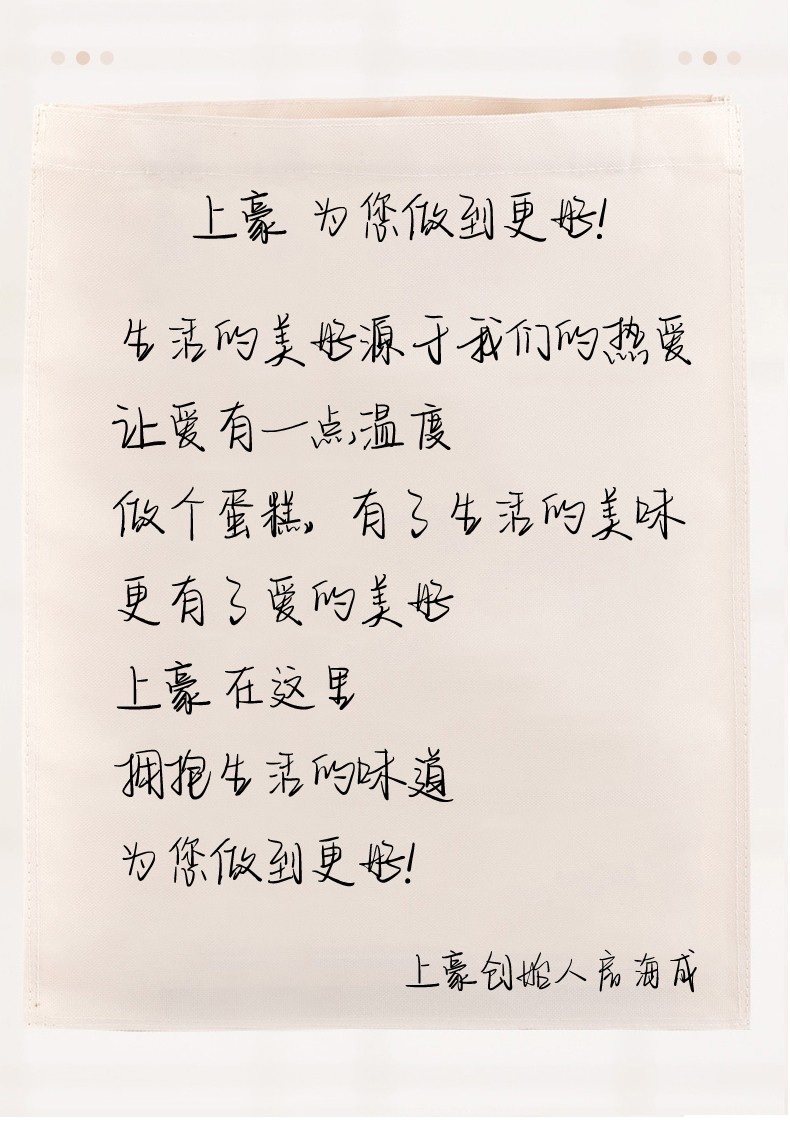 上豪 为您做到更好!
生活的美好源于我们的热爱
让爱有一点温度
做个蛋糕,有了生活的美味
更有了爱的美好
上豪在这里
拥抱生活的味道
为您做到更好!
上豪创始人房海成